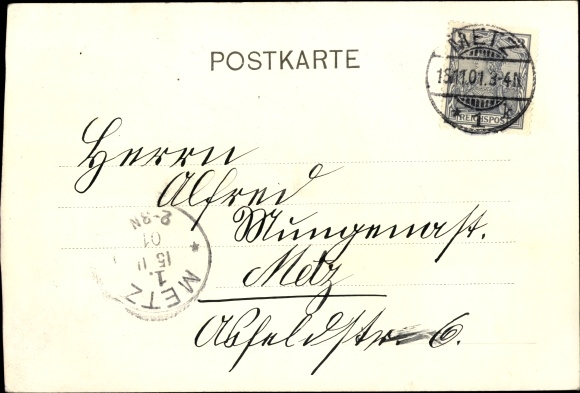 POSTKARTE
METZ
15.11.01.3-4N
* 1 *
REICHSPOST
Herrn
Alfred
Mungenast.
Metz
Asfeldstr. 6.
METZ
1.
15 11
01
2-3N